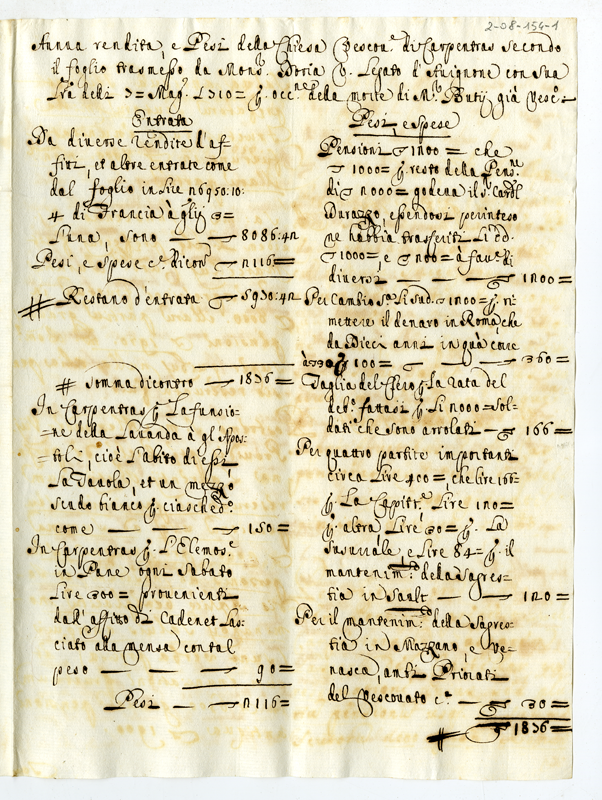 2-08-154-1
Annua rendita, e Pesi della Chiesa Vescou.e di Carpentras secondo
il foglio trasmesso da Mons.r Doria V. Legato d'Auignone con sua
lr̃a delli 3 = Mag.o 1710 = p. occ.ne della morte di M.r Butij già Vesc.o
Entrata
Da diuerse rendite d'af-
fitti, et altre entrate come
dal foglio in lire n6950:10:
4 di Francia à glij 3=
l'una, sono — — 8086:42
Pesi, e Spese c.o di con.o — 2116=
# Restano d'entrata — 5930:42
# Somma di contro — 1836=
In Carpentras p. La funsio-
=ne della Lauanda à gl'Apos-
=toli, cioè l'abito di essi
La Tauola, et un mezzo
scudo bianco p. ciasched.o
come — — — 150=
In Carpentras p. L'Elemos.e
in Pane ogni Sabato
Lire 300= prouenienti
dall'affitto di Cadenet Las-
ciato alla mensa con tal
peso — — — 90=
Pesi — — 2116=
Pesi, e Spese
Pensioni 1200= che
1000= p. resto della Pens.ne
di 2000= godeua il s.r Card.l
Durazzo, essendosi per inteso
ne habbia trasferiti li cd.
1000=, e 200= à fau.e di
diuersi — — — 1200=
Per Cambio s.a li sud. 1200= p. ri-
mettere il denaro in Roma, che
da Dieci anni in quà corre
à 30 p. 100= — — 360=
Taglia del Clero p. La rata del
deb.o fattasi p. li 2000= Sol-
dati che sono arrolati — 166=
Per quattro partite importanti
circa Lire 400=, che lire 166=
p. La Capitt.e Lire 120=
p. altra Lire 30= p. La
sussidiale, e Lire 84= p. il
mantenim.o della Sagres-
tia in Saalt — — 120=
Per il mantenim.o della Sagres-
tia in Mazzano, e Ve-
nasca, ambi Priorati
del Vescouato c.a — 30=
# 1836=